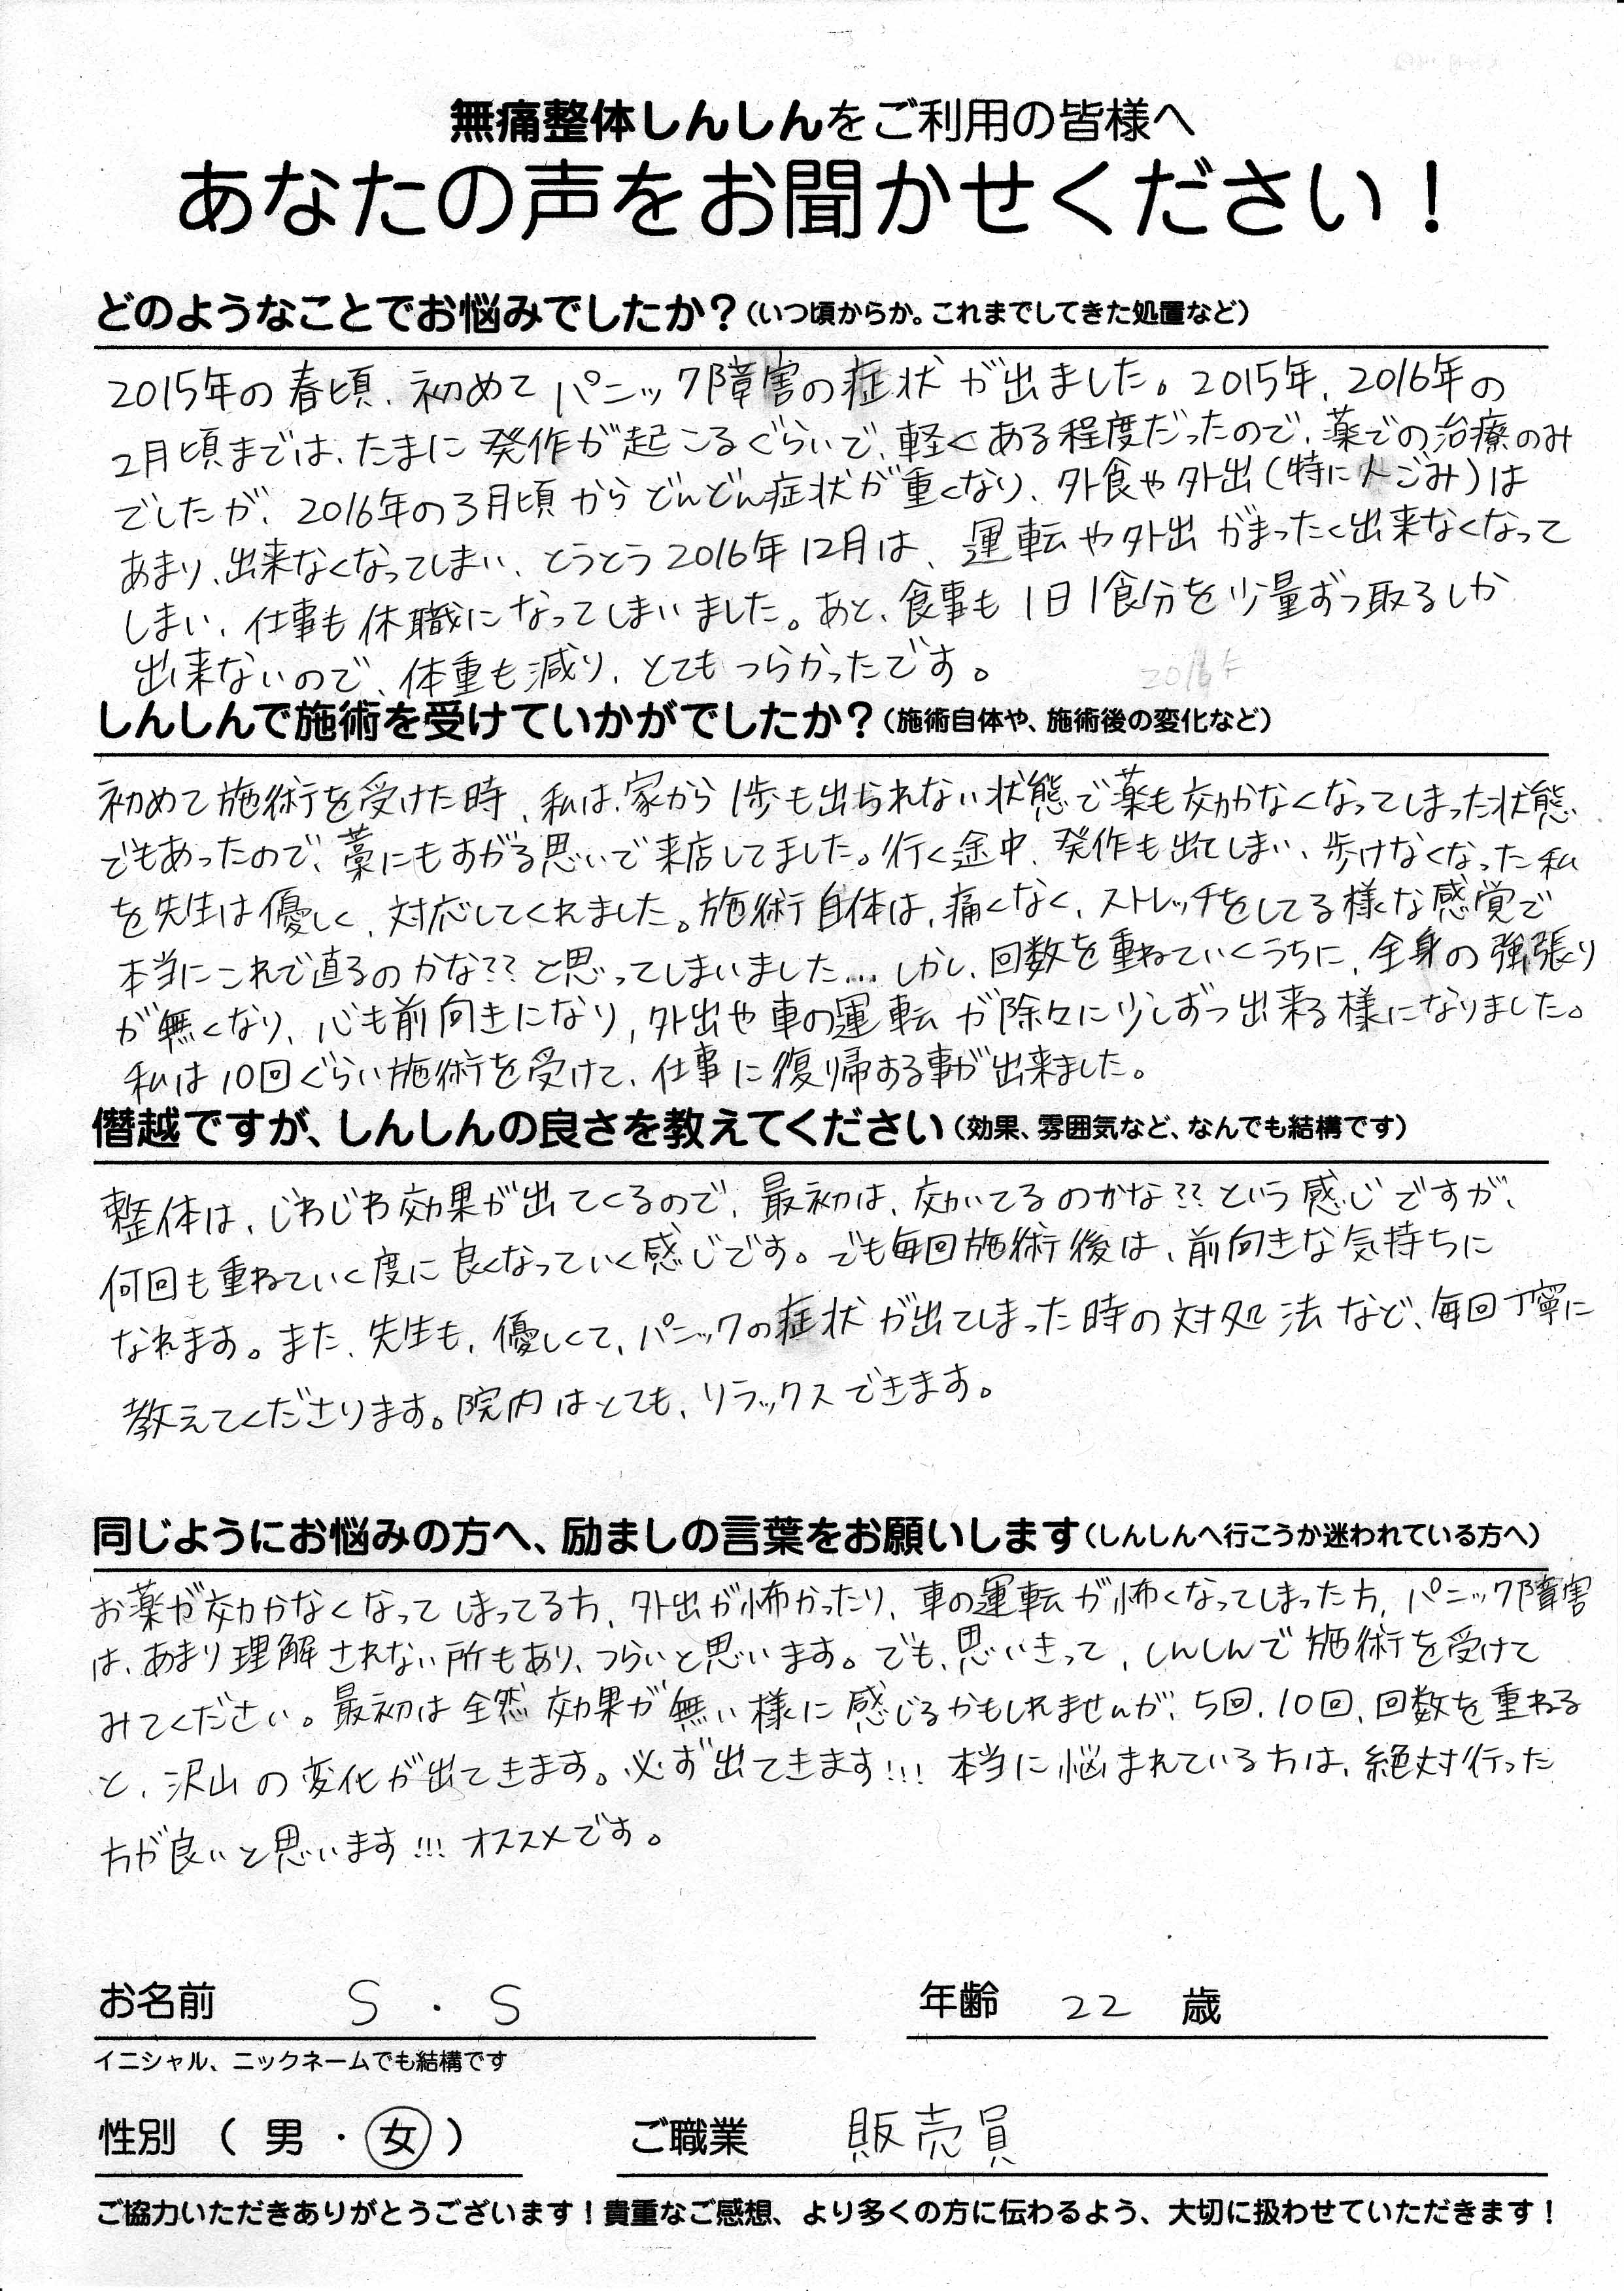 無痛整体しんしんをご利用の皆様へ
あなたの声をお聞かせください！
どのようなことでお悩みでしたか？（いつ頃からか。これまでしてきた処置など）
2015年の春頃、初めてパニック障害の症状が出ました。2015年、2016年の
2月頃までは、たまに発作が起こるぐらいで、軽くある程度だったので、薬での治療のみ
でしたが、2016年の3月頃からどんどん症状が重くなり、外食や外出（特に人ごみ）は
あまり、出来なくなってしまい、とうとう2016年12月は、運転や外出がまったく出来なくなって
しまい、仕事も休職になってしまいました。あと、食事も1日1食分を少量ずつ取るしか
出来ないので、体重も減り、とてもつらかったです。
しんしんで施術を受けていかがでしたか？（施術自体や、施術後の変化など）
初めて施術を受けた時、私は、家から1歩も出られない状態で薬も効かなくなってしまった状態
でもあったので、藁にもすがる思いで来店してました。行く途中、発作も出てしまい、歩けなくなった私
を先生は優しく、対応してくれました。施術自体は、痛くなく、ストレッチをしてる様な感覚で
本当にこれで直るのかな？？と思ってしまいました… しかし、回数を重ねていくうちに、全身の強張り
が無くなり、心も前向きになり、外出や車の運転が除々に少しずつ出来る様になりました。
私は10回ぐらい施術を受けて、仕事に復帰する事が出来ました。
僭越ですが、しんしんの良さを教えてください（効果、雰囲気など、なんでも結構です）
整体は、じわじわ効果が出てくるので、最初は、効いてるのかな？？という感じですが、
何回も重ねていく度に良くなっていく感じです。でも毎回施術後は、前向きな気持ちに
なれます。また、先生も、優しくて、パニックの症状が出てしまった時の対処法など、毎回丁寧に
教えてくださります。院内はとても、リラックスできます。
同じようにお悩みの方へ、励ましの言葉をお願いします（しんしんへ行こうか迷われている方へ）
お薬が効かなくなってしまってる方、外出が怖かったり、車の運転が怖くなってしまった方、パニック障害
は、あまり理解されない所もあり、つらいと思います。でも、思いきって、しんしんで施術を受けて
みてください。最初は全然効果が無い様に感じるかもしれませんが、5回、10回、回数を重ねる
と、沢山の変化が出てきます。必ず出てきます!!! 本当に悩まれている方は、絶対行った
方が良いと思います!!! オススメです。
お名前 S・S 年齢 22 歳
イニシャル、ニックネームでも結構です
性別（男・女） ご職業 販売員
ご協力いただきありがとうございます！貴重なご感想、より多くの方に伝わるよう、大切に扱わせていただきます！